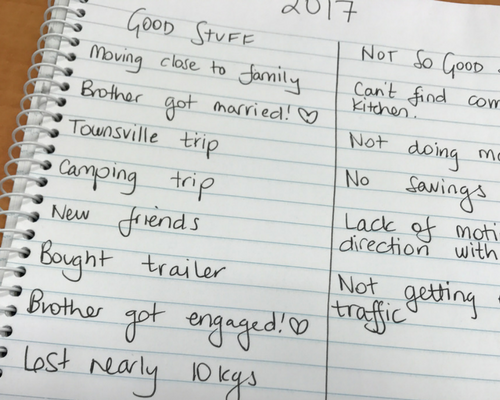 2017
GOOD STUFF
Moving close to family
Brother got married! ♡
Townsville trip
Camping trip
New friends
Bought trailer
Brother got engaged! ♡
Lost nearly 10kgs
NOT SO GOOD
Can't find
kitchen.
Not doing
No savings
Lack of
direction with
Not getting
traffic